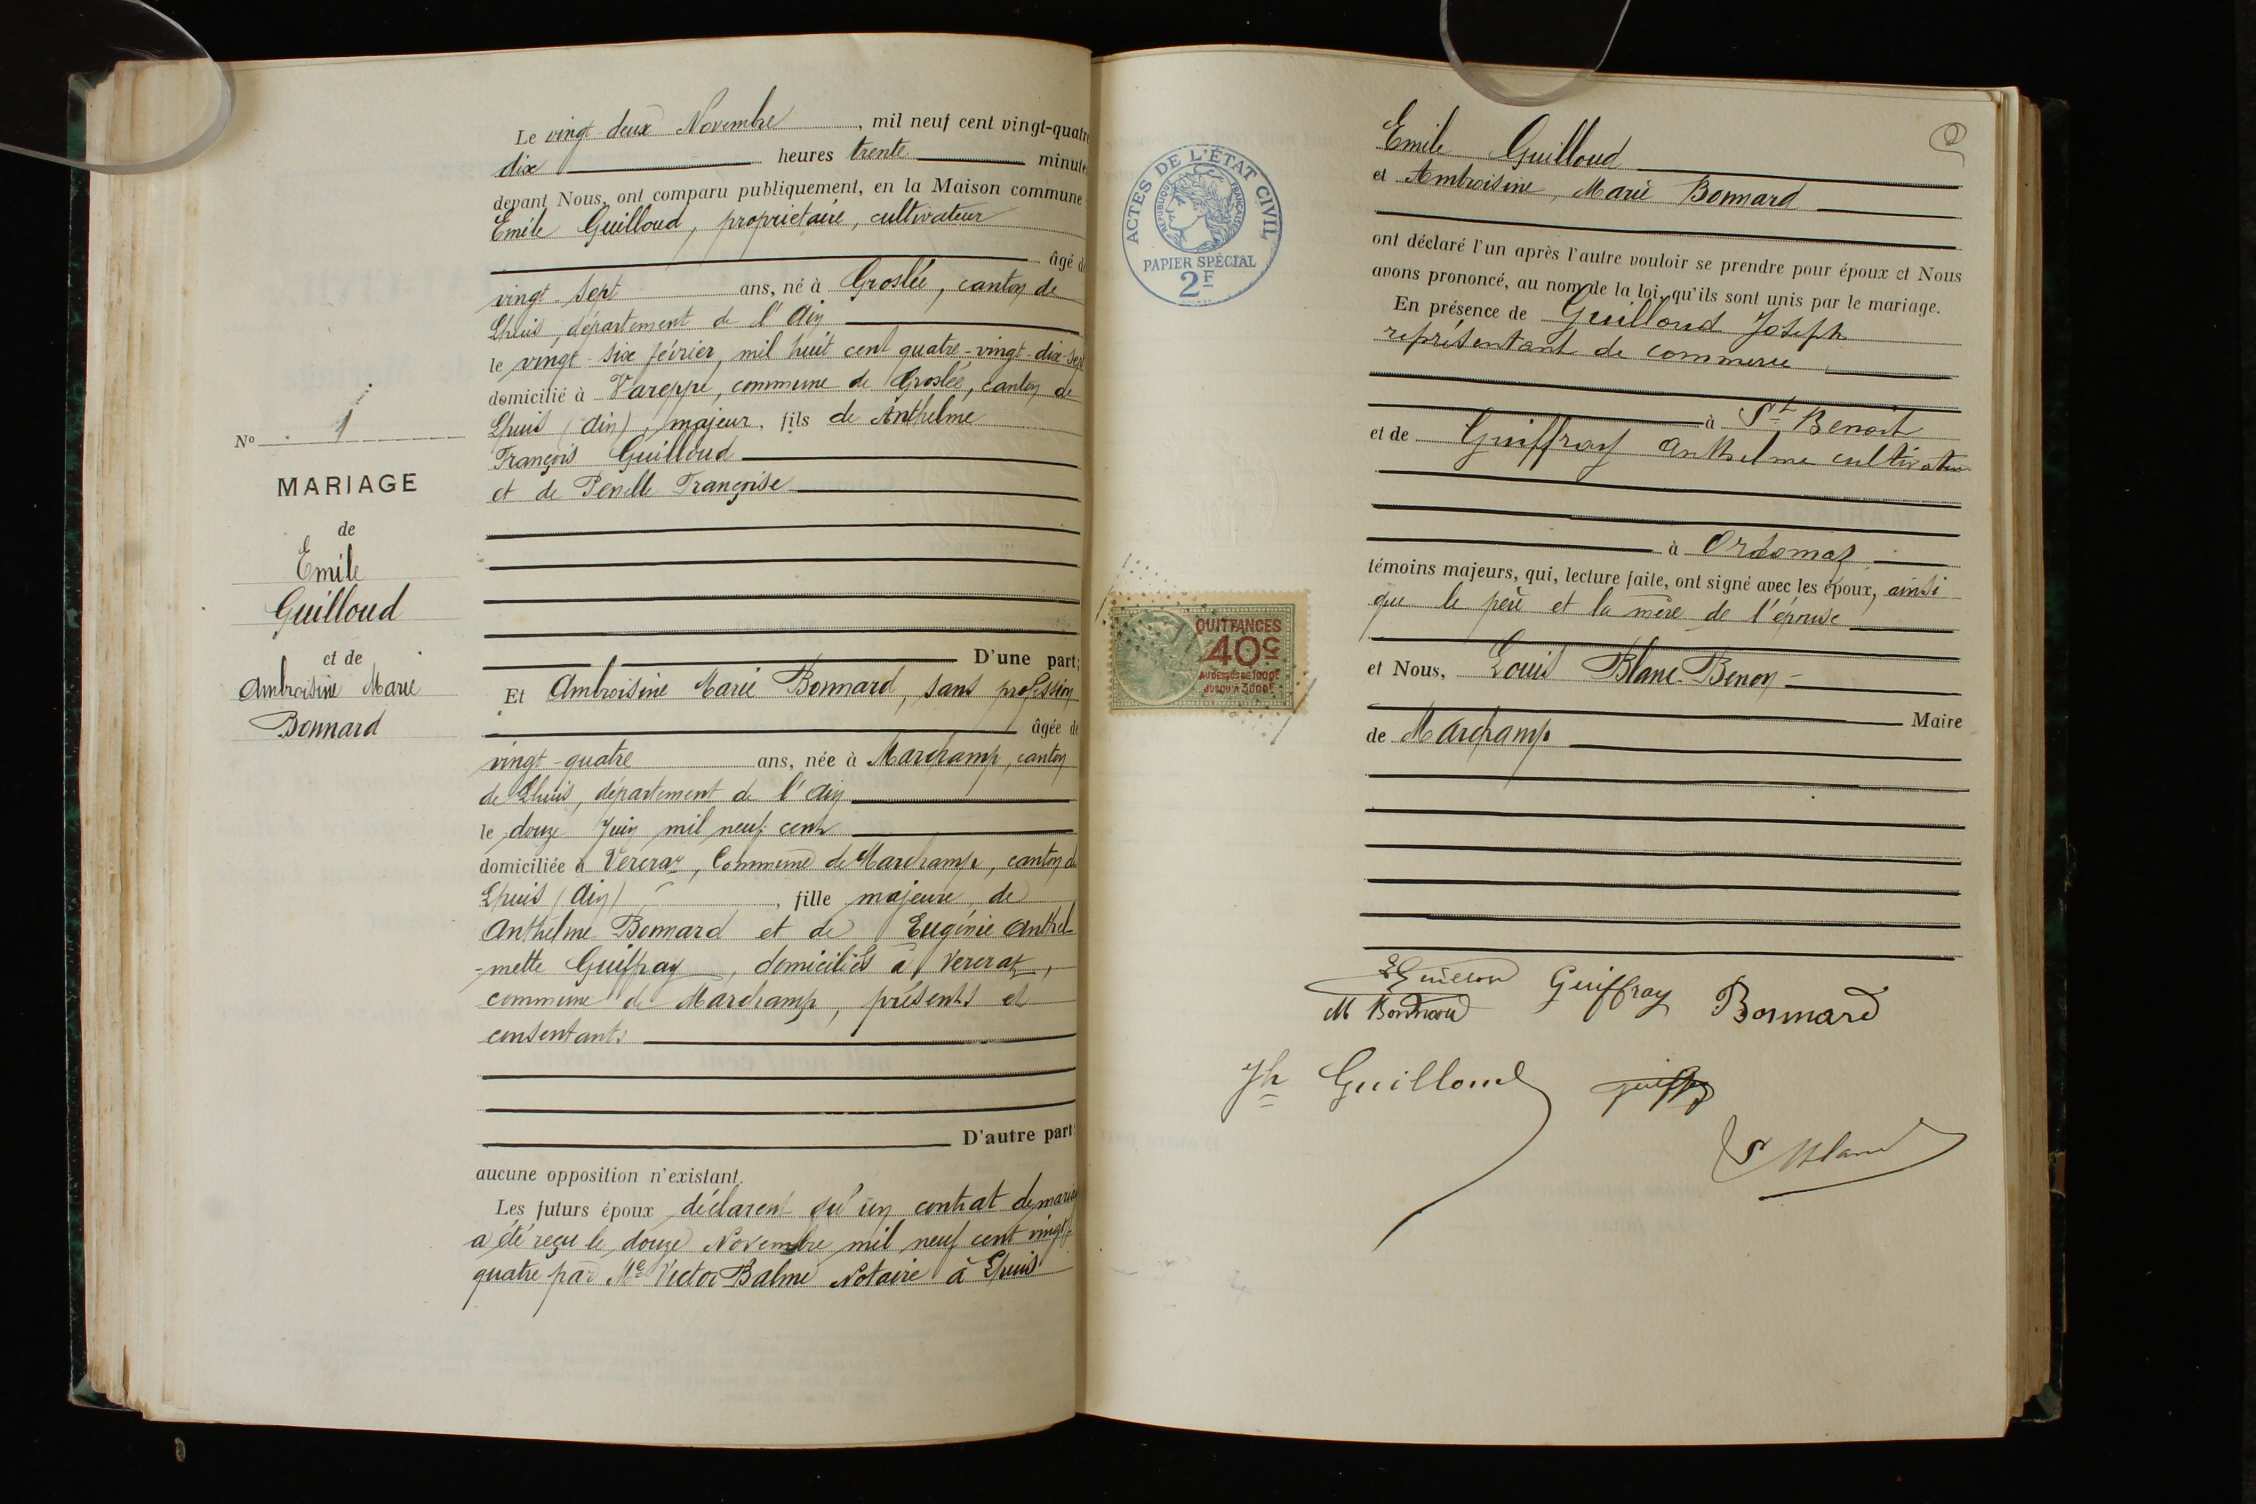 Le vingt deux Novembre, mil neuf cent vingt-quatre
dix heures trente minutes
devant Nous, ont comparu publiquement, en la Maison commune
Emile Guilloud, propriétaire, cultivateur
âgé de
vingt-sept ans, né à Groslée, canton de
Lhuis, département de l'Ain
le vingt-six février, mil huit cent quatre-vingt-dix-sept
domicilié à Vareppe, commune de Groslée, canton de
Lhuis (Ain), majeur, fils de Anthelme
François Guilloud
et de Françoise
D'une part;
Et Ambroisine Marie Bonnard, sans profession
âgée de
vingt-quatre ans, née à Marchamp, canton
de Lhuis, département de l'Ain
le douze Juin mil neuf cent
domiciliée à Vercraz, Commune de Marchamp, canton de
Lhuis (Ain), fille majeure de
Anthelme Bonnard et de Eugénie Anthel-
-mette Guiffray, domiciliés à Vercraz,
commune de Marchamp, présents et
consentants
D'autre part;
aucune opposition n'existant.
Les futurs époux déclarent qu'un contrat de mariage
a été reçu le douze Novembre mil neuf cent vingt-
quatre par Me Victor Balme Notaire à Lhuis
No 1
MARIAGE
de
Emile
Guilloud
et de
Ambroisine Marie
Bonnard
ACTES DE L'ÉTAT CIVIL
RÉPUBLIQUE FRANÇAISE
PAPIER SPÉCIAL
2F
QUITTANCES
40c
AU DESSUS DE 1000F
JUSQU'A 3000F
2
Emile Guilloud
et Ambroisine, Marie Bonnard
ont déclaré l'un après l'autre vouloir se prendre pour époux et Nous
avons prononcé, au nom de la loi, qu'ils sont unis par le mariage.
En présence de Guilloud Joseph
représentant de commerce
à St Benoit
et de Guiffray Anthelme cultivateur
à Ordonnaz
témoins majeurs, qui, lecture faite, ont signé avec les époux, ainsi
que le père et la mère de l'épouse
et Nous, Louis Blanc-Benon
Maire
de Marchamp
E Guilloud Guiffray Bonnard
M Bonnard
Jh Guilloud Guiffray
Blanc